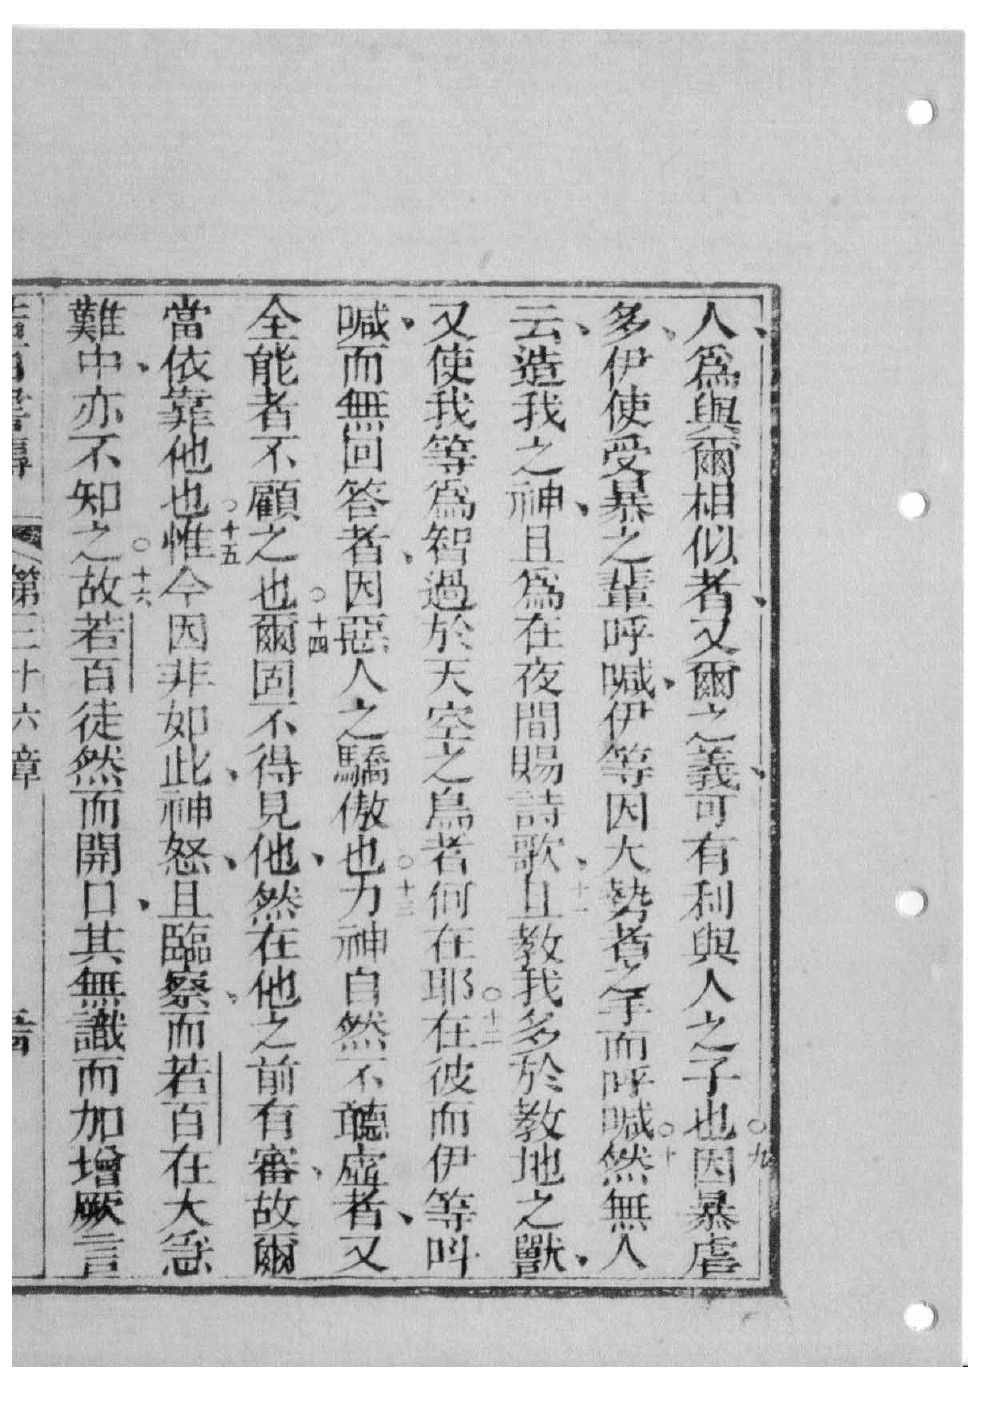 人、爲與爾相似者、又爾之義、可有利與人之子也○九因暴虐
多、伊使受暴之輩呼喊、伊等因大勢者之手而呼喊○十然無人
云、造我之神、且爲在夜間賜詩歌、○十一且教我多於教地之獸、
又使我等爲智過於天空之鳥者何在耶○十二在彼而伊等呌
喊、而無回答者、因惡人之驕傲也○十三力神自然不聽虛者、又
全能者不顧之也○十四爾固不得見他、然在他之前有審、故爾
當依靠他也○十五惟今因非如此、神怒、且臨察、而若百在大急
難中、亦不知之○十六故若百徒然而開口、其無識而加增厥言
第三十六章